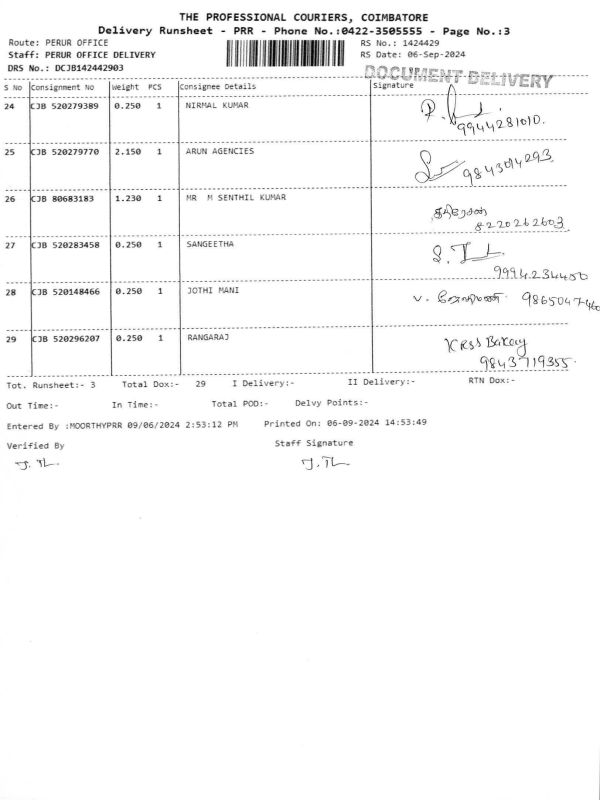 THE PROFESSIONAL COURIERS, COIMBATORE
Delivery Runsheet - PRR - Phone No.:0422-3505555 - Page No.:3
Route: PERUR OFFICE RS No.: 1424429
Staff: PERUR OFFICE DELIVERY RS Date: 06-Sep-2024
DRS No.: DCJB142442903
DOCUMENT DELIVERY
S No Consignment No Weight PCS Consignee Details Signature
24 CJB 520279389 0.250 1 NIRMAL KUMAR
9944281010.
25 CJB 520279770 2.150 1 ARUN AGENCIES
9843014293
26 CJB 80683183 1.230 1 MR M SENTHIL KUMAR
8220262603
27 CJB 520283458 0.250 1 SANGEETHA
9994234450
28 CJB 520148466 0.250 1 JOTHI MANI V. ஜோதிமணி 9865047460
29 CJB 520296207 0.250 1 RANGARAJ KRSS Bakery
9843719355
Tot. Runsheet:- 3 Total Dox:- 29 I Delivery:- II Delivery:- RTN Dox:-
Out Time:- In Time:- Total POD:- Delvy Points:-
Entered By :MOORTHYPRR 09/06/2024 2:53:12 PM Printed On: 06-09-2024 14:53:49
Verified By Staff Signature